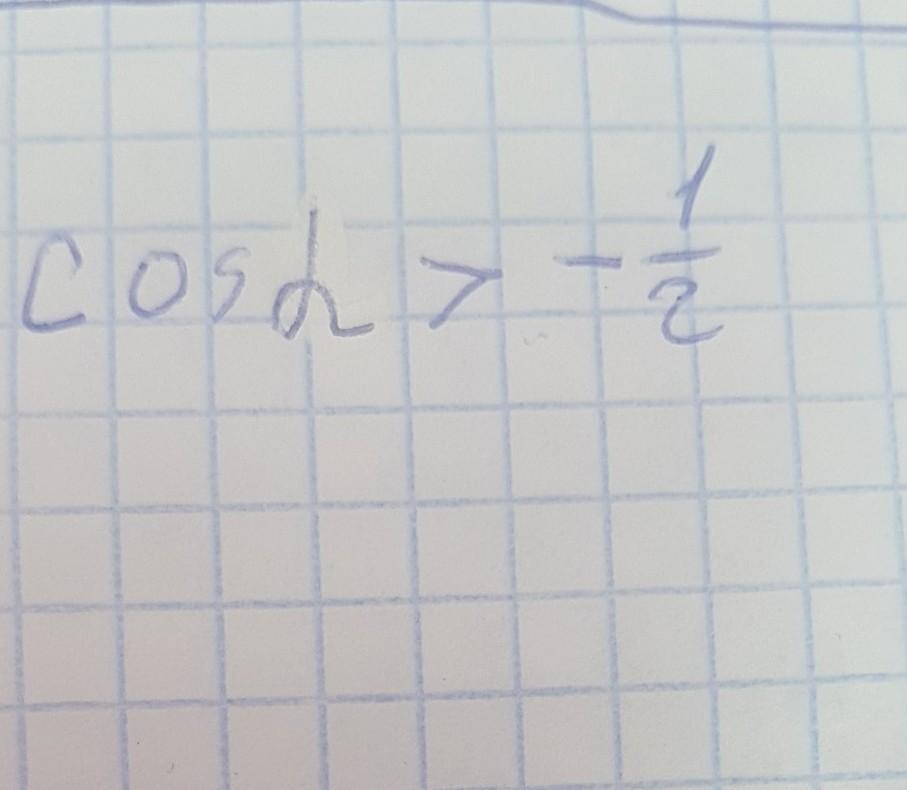 cos α > -1/2